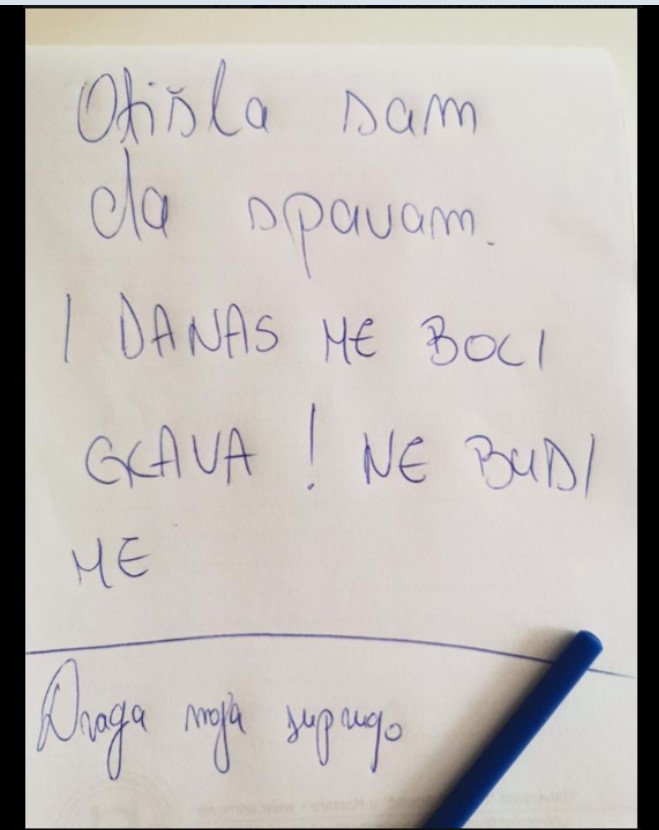 Otišla sam
da spavam.
I DANAS ME BOLI
GLAVA! NE BUDI
ME
Draga moja suprugo